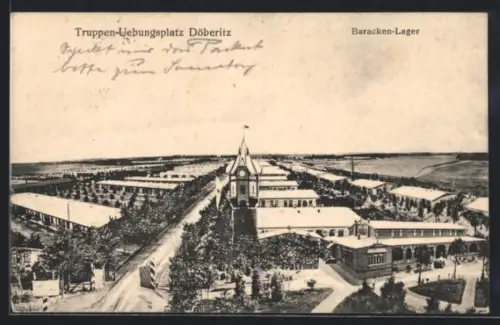 Truppen-Uebungsplatz Döberitz
Baracken-Lager
mir das Packet
bitte zum Sonntag